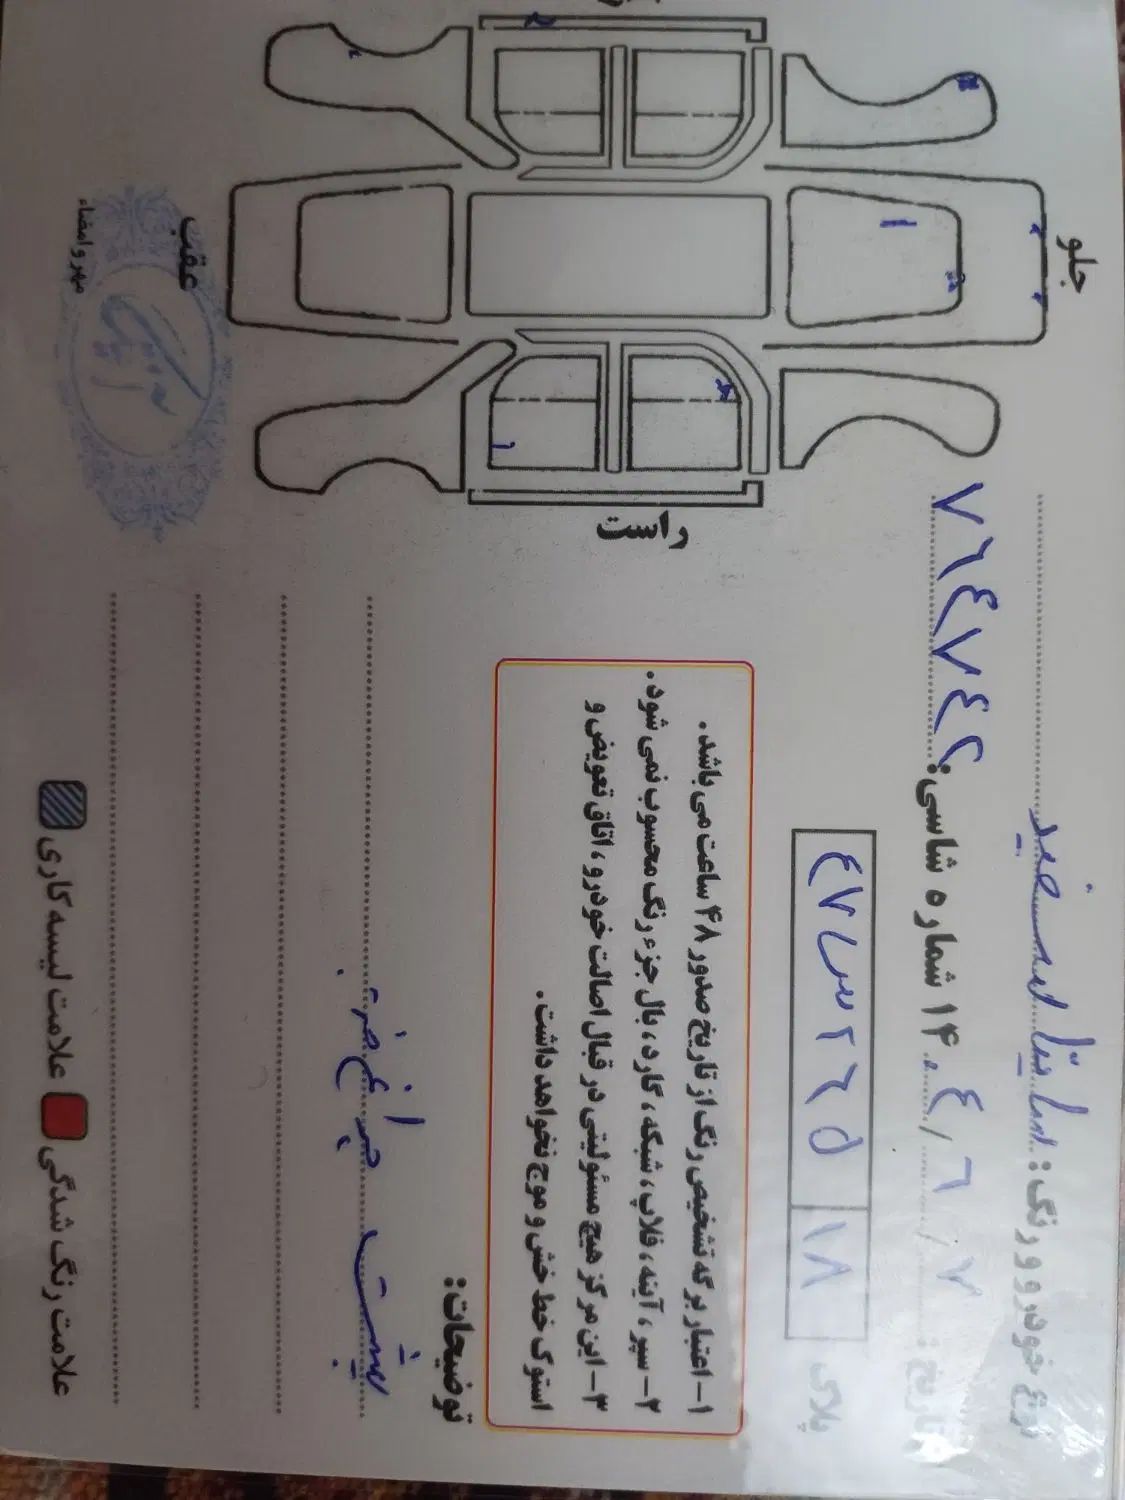 نوع خودرو و رنگ: ساینا سفید
تاریخ: ۷ / ۶ / ۱۴۰۴ شماره شاسی: ۷۶۴۷۴۲
پلاک
۱۸
جلو
عقب
راست
۱- اعتبار برگه تشخیص رنگ از تاریخ صدور ۴۸ ساعت می باشد.
۲- سپر، آینه، قلاب، شبکه، گارد، بال جزء رنگ محسوب نمی شود.
۳- این مرکز هیچ مسئولیتی در قبال اصالت خودرو، اتاق تعویض و
استوک خط خش و موج نخواهد داشت.
توضیحات:
علامت رنگ شدگی علامت لیسه کاری
مهر و امضاء